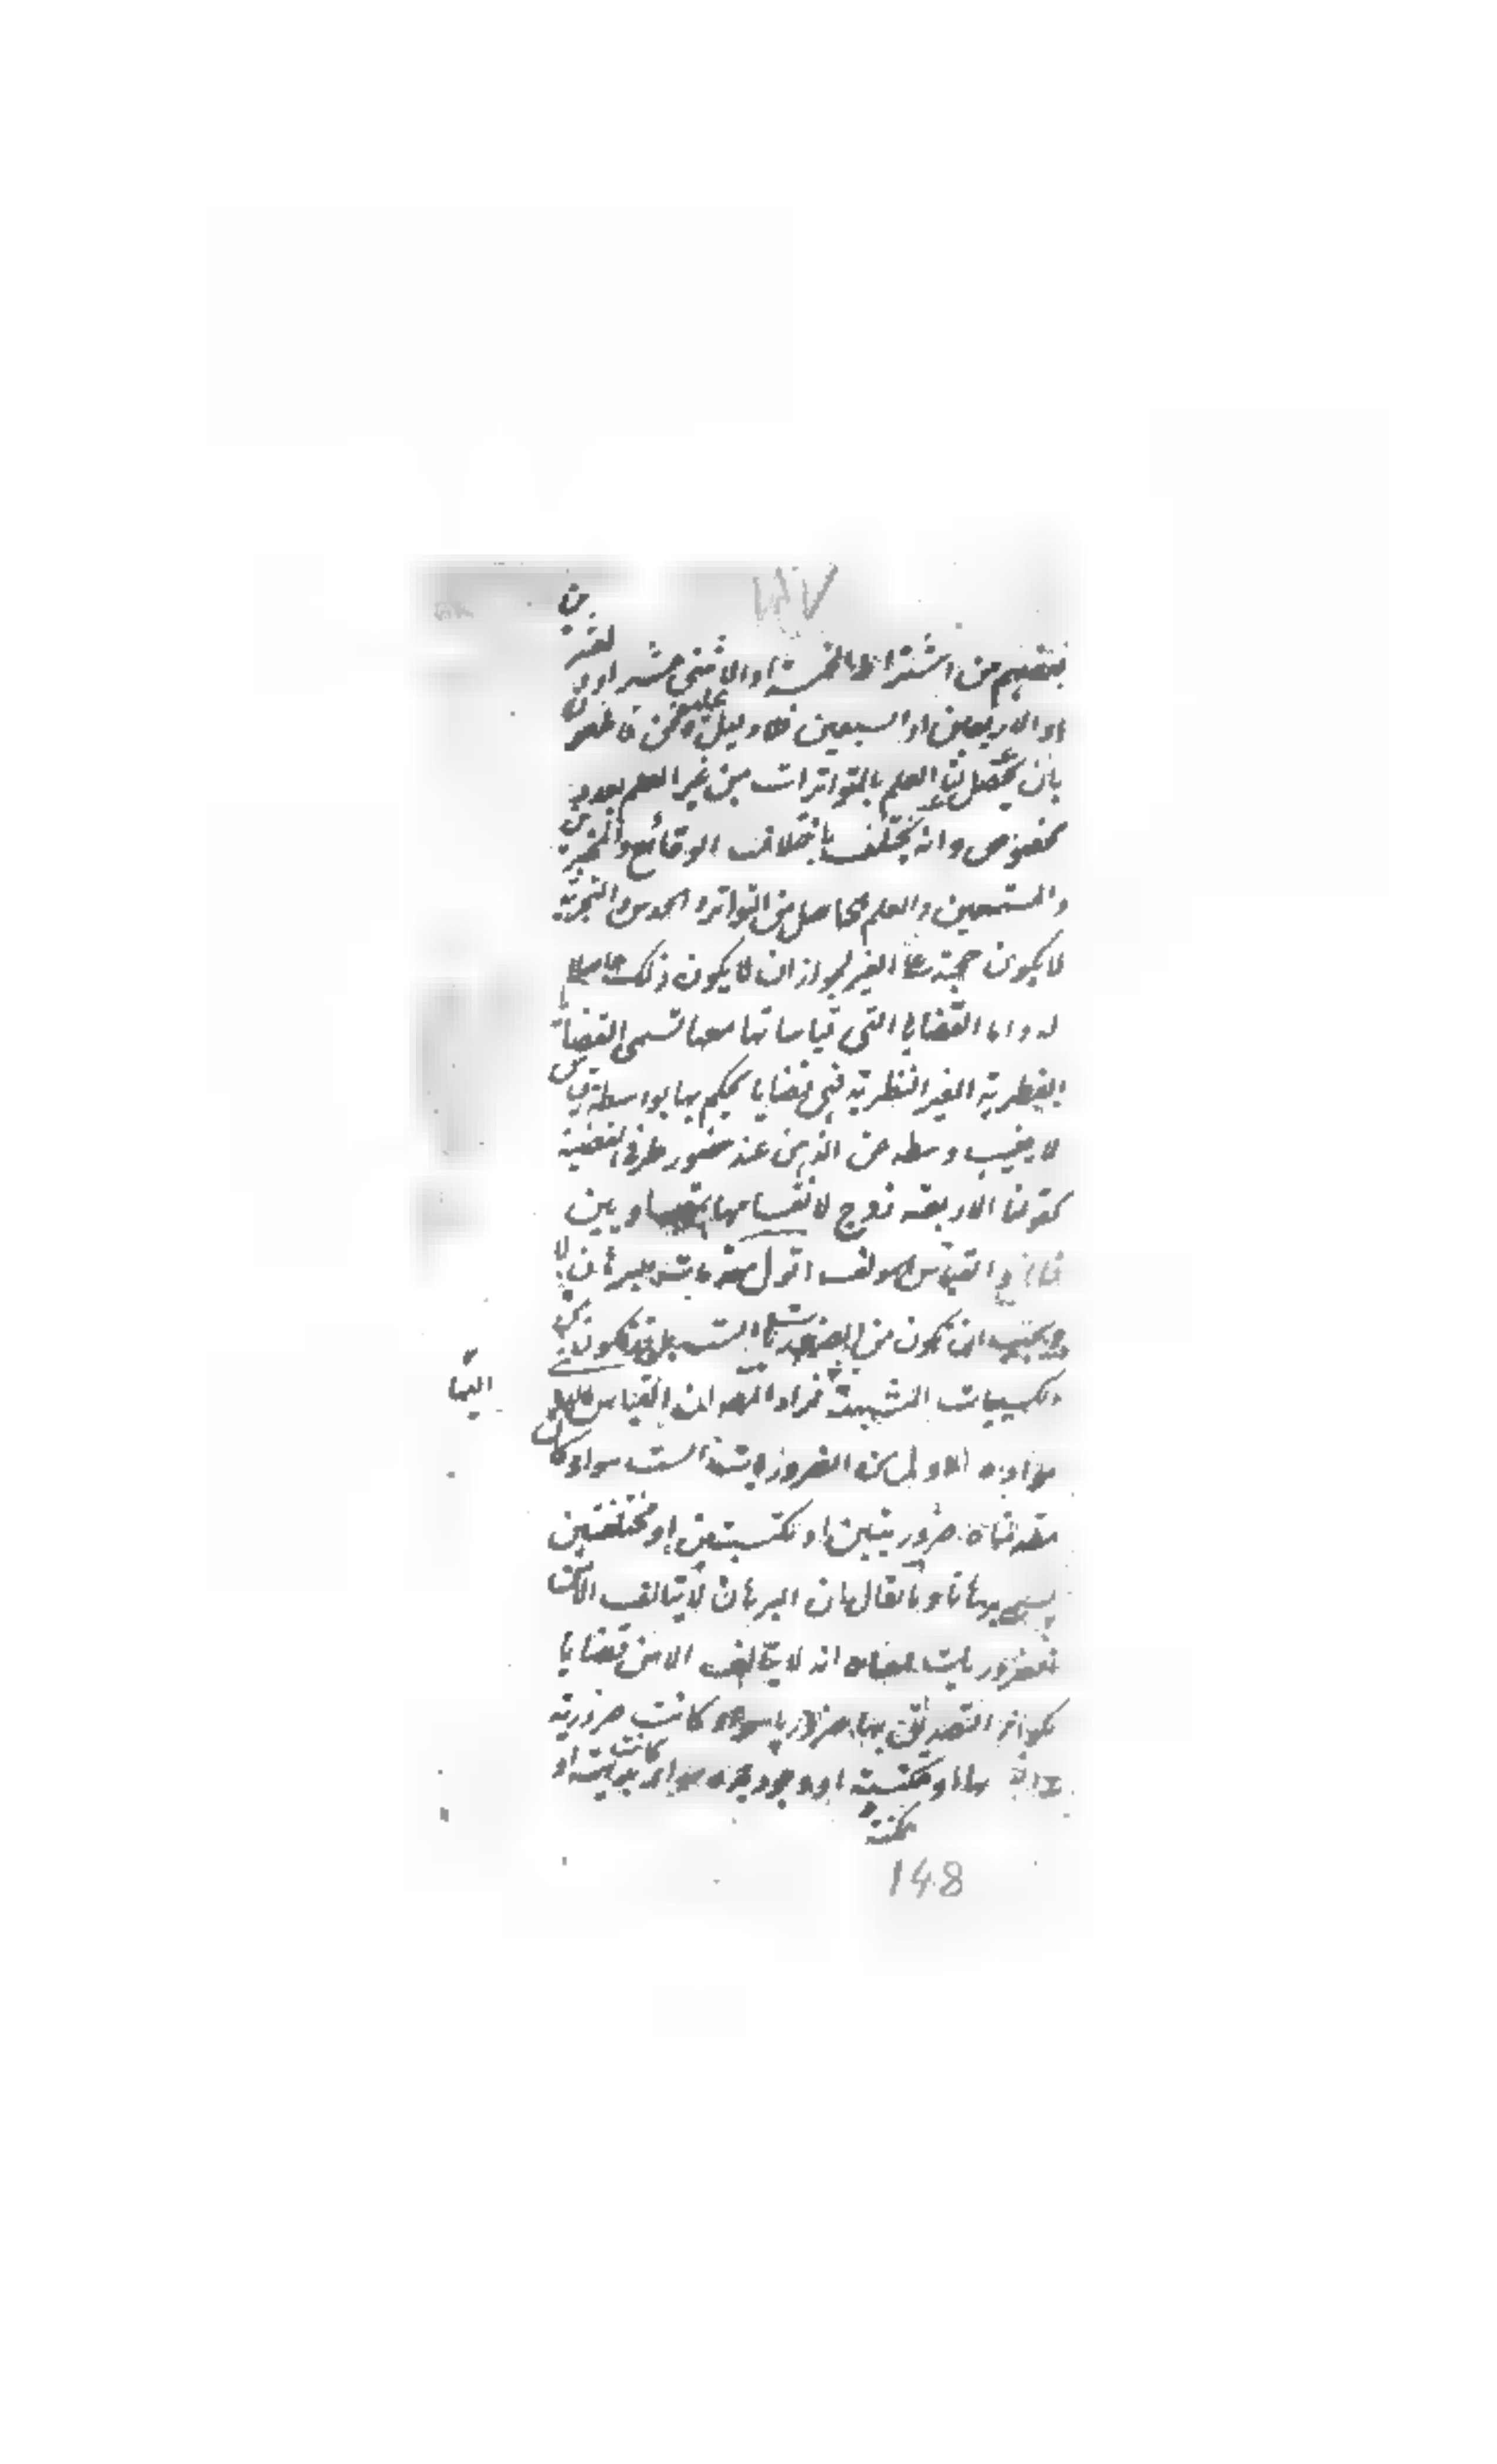 ١٨٧
بعضهم من اشتراط الخمسة او الاثنى عشر او العشرين
او الاربعين او السبعين فلا دليل عليه ونحن قاطعون
بان يحصل لنا العلم بالمتواترات من غير العلم بعدد
مخصوص وانه يختلف باختلاف الوقائع والمخبرين
والمستمعين والعلم الحاصل من التواتر والحدس والتجربة
لا يكون حجة على الغير لجواز ان لا يكون ذلك حاصلا
له واما القضايا التى قياساتها معها تسمى القضايا
الفطرية الغير النظرية فهى قضايا يحكم بها بواسطة قياس
لا يغيب وسطه عن الذهن عند حضور طرفى القضية
كقولنا الاربعة زوج لانقسامها بمتساويين
قال والقياس المؤلف اقول مقدمات البرهان لا
يجب ان تكون من الضروريات الست بل قد تكون من
المكتسبات المنتهية فمراد المص ان القياس الذى
مواده الاولى من الضروريات الست سواء كان
مقدمتاه ضروريتين او مكتسبتين او مختلفتين
يسمى برهانا وما يقال بان البرهان لا يتالف الا من
الضروريات معناه انه لا يتالف الا من قضايا
يكون التصديق بها ضروريا سواء كانت ضرورية
او مكتسبة او وجودية سواء كانت بديهية او
ممكنة
148